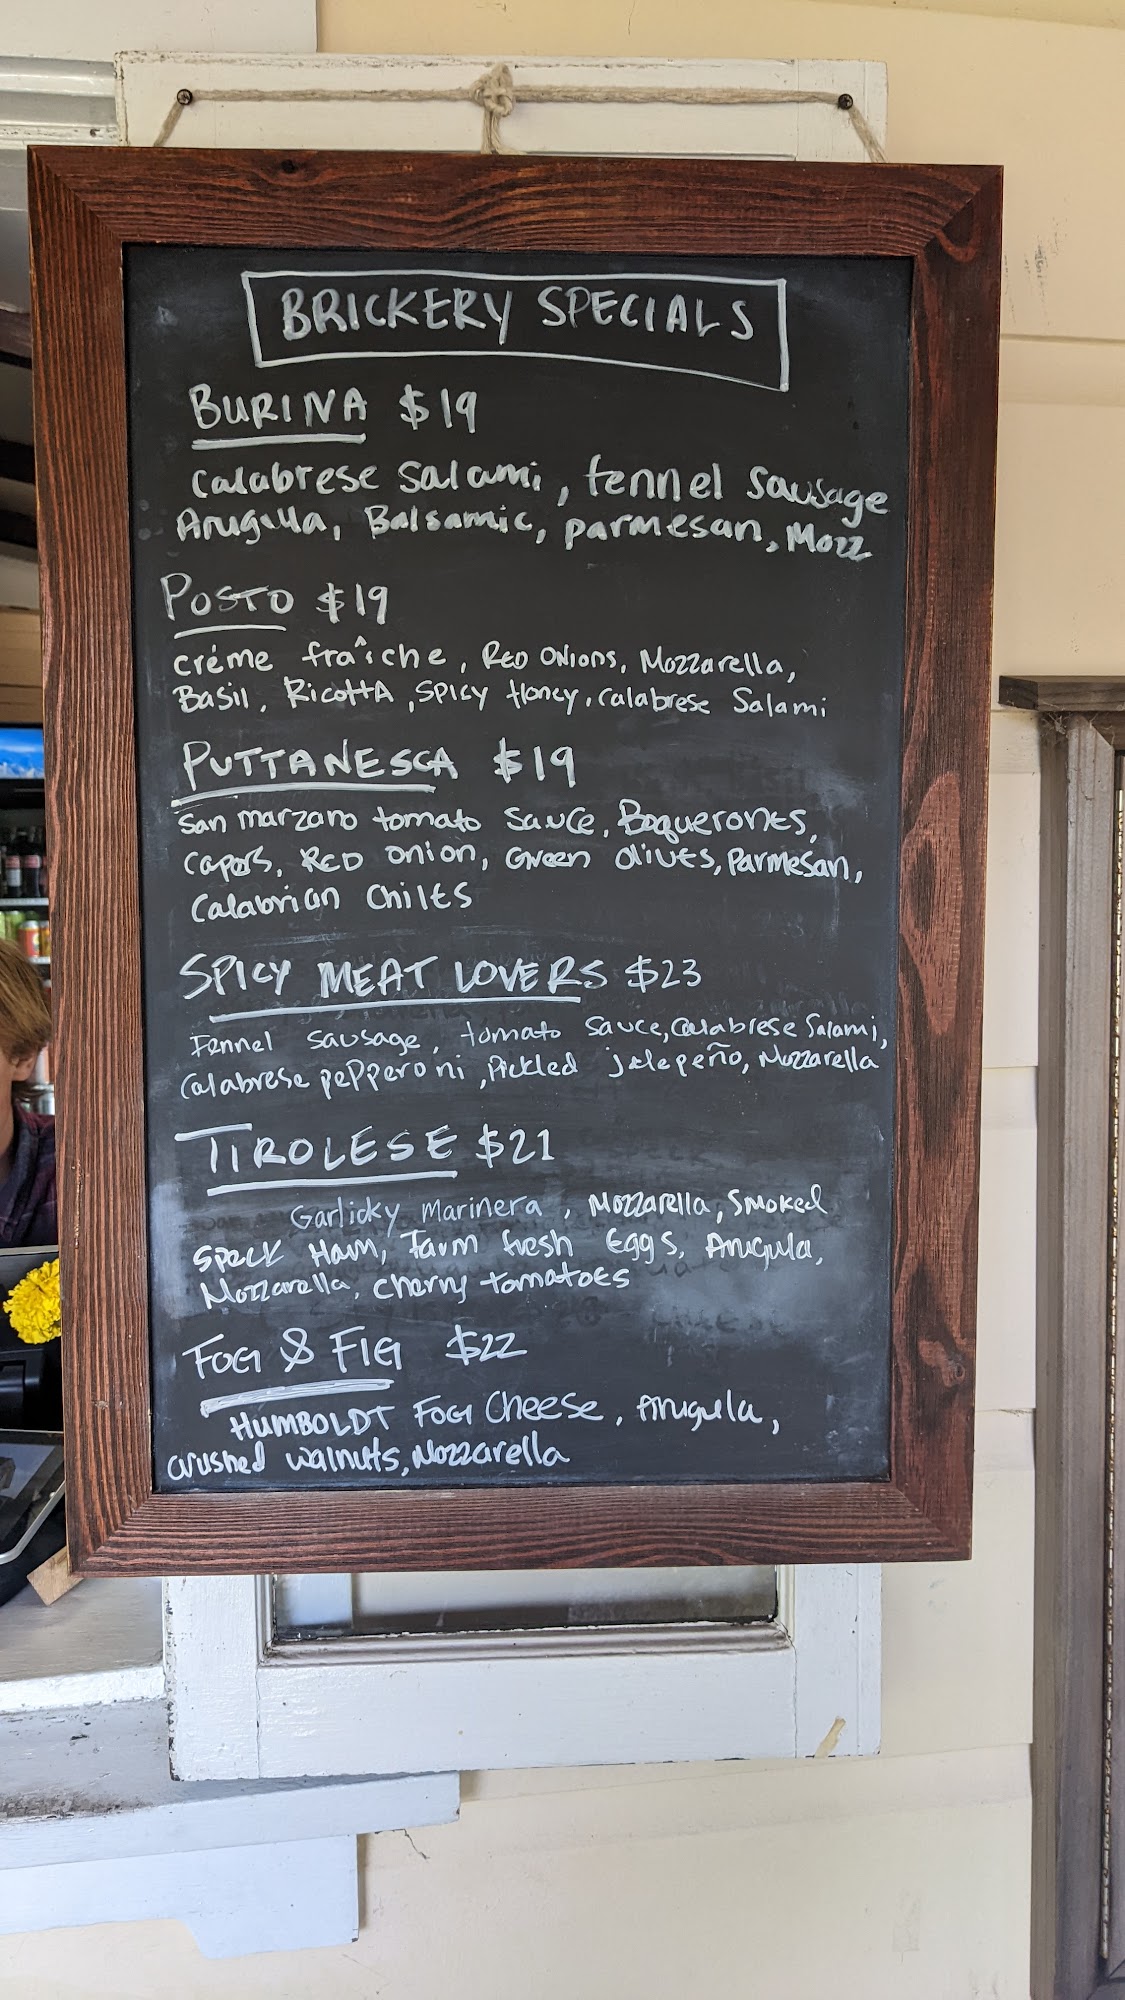 BRICKERY SPECIALS
BURINA $19
Calabrese Salami, fennel Sausage
Arugula, Balsamic, parmesan, Mozz
POSTO $19
créme fraîche, RED ONIONS, Mozzarella,
Basil, RicottA, SPICY Honey, Calabrese Salami
PUTTANESCA $19
San marzano tomato Sauce, Boquerones,
Capers, RED onion, Green olives, Parmesan,
Calabrian Chiles
SPICY MEAT LOVERS $23
Fennel sausage, tomato sauce, Calabrese Salami,
Calabrese pepperoni, Pickled jalepeño, Mozzarella
TIROLESE $21
Garlicky Marinera, Mozzarella, Smoked
Speck Ham, Farm fresh Eggs, Arugula,
Mozzarella, Cherry tomatoes
FOG & FIG $22
HUMBOLDT FOG Cheese, Arugula,
crushed walnuts, Mozzarella